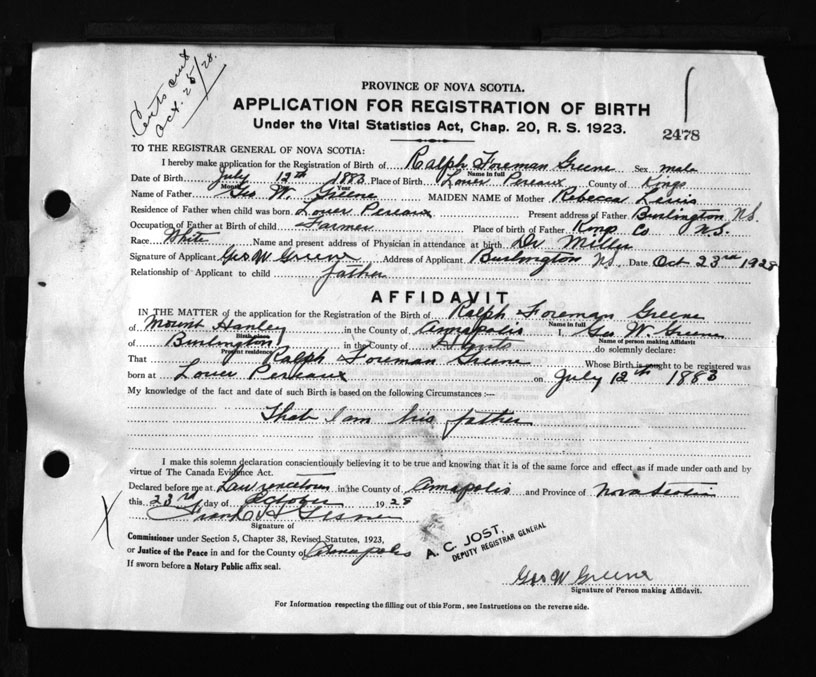 Certs out
Oct. 25/28.
PROVINCE OF NOVA SCOTIA.
APPLICATION FOR REGISTRATION OF BIRTH
Under the Vital Statistics Act, Chap. 20, R. S. 1923.
2478
TO THE REGISTRAR GENERAL OF NOVA SCOTIA:
I hereby make application for the Registration of Birth of Ralph Foreman Greene Sex male
Name in full
Date of Birth July 12th 1883 Place of Birth Lower Pereaux County of Kings
Month Year
Name of Father Geo W. Greene MAIDEN NAME of Mother Rebecca Lewis
Residence of Father when child was born Lower Pereaux Present address of Father Burlington N.S.
Occupation of Father at Birth of child Farmer Place of birth of Father Kings Co N.S.
Race White Name and present address of Physician in attendance at birth Dr Miller
Signature of Applicant Geo W Greene Address of Applicant Burlington N.S. Date Oct 23rd 1928
Relationship of Applicant to child father
AFFIDAVIT
IN THE MATTER of the application for the Registration of the Birth of Ralph Foreman Greene
Name in full
of Mount Hanley in the County of Annapolis I, Geo W. Greene
Name of person making Affidavit
of Burlington in the County of Hants do solemnly declare:
Present residence
That Ralph Foreman Greene Whose Birth is sought to be registered was
born at Lower Pereaux on July 12th 1883
My knowledge of the fact and date of such Birth is based on the following Circumstances :—
That I am his father
I make this solemn declaration conscientiously believing it to be true and knowing that it is of the same force and effect as if made under oath and by
virtue of The Canada Evidence Act.
Declared before me at Lawrencetown in the County of Annapolis and Province of Nova Scotia
this 23rd day of October 1928
Signature of
Commissioner under Section 5, Chapter 38, Revised Statutes, 1923,
or Justice of the Peace in and for the County of Annapolis
If sworn before a Notary Public affix seal.
A. C. JOST,
DEPUTY REGISTRAR GENERAL
Geo W Greene
Signature of Person making Affidavit.
For Information respecting the filling out of this Form, see Instructions on the reverse side.